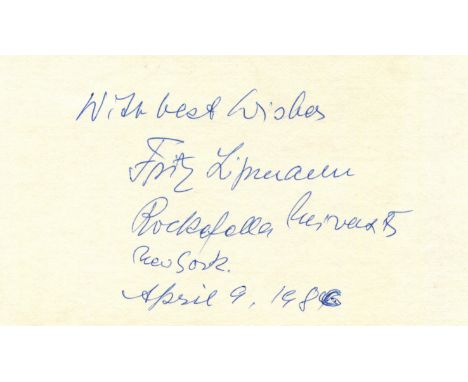 With best Wishes
Fritz Lipmann
Rockefeller University
New York.
April 9, 198